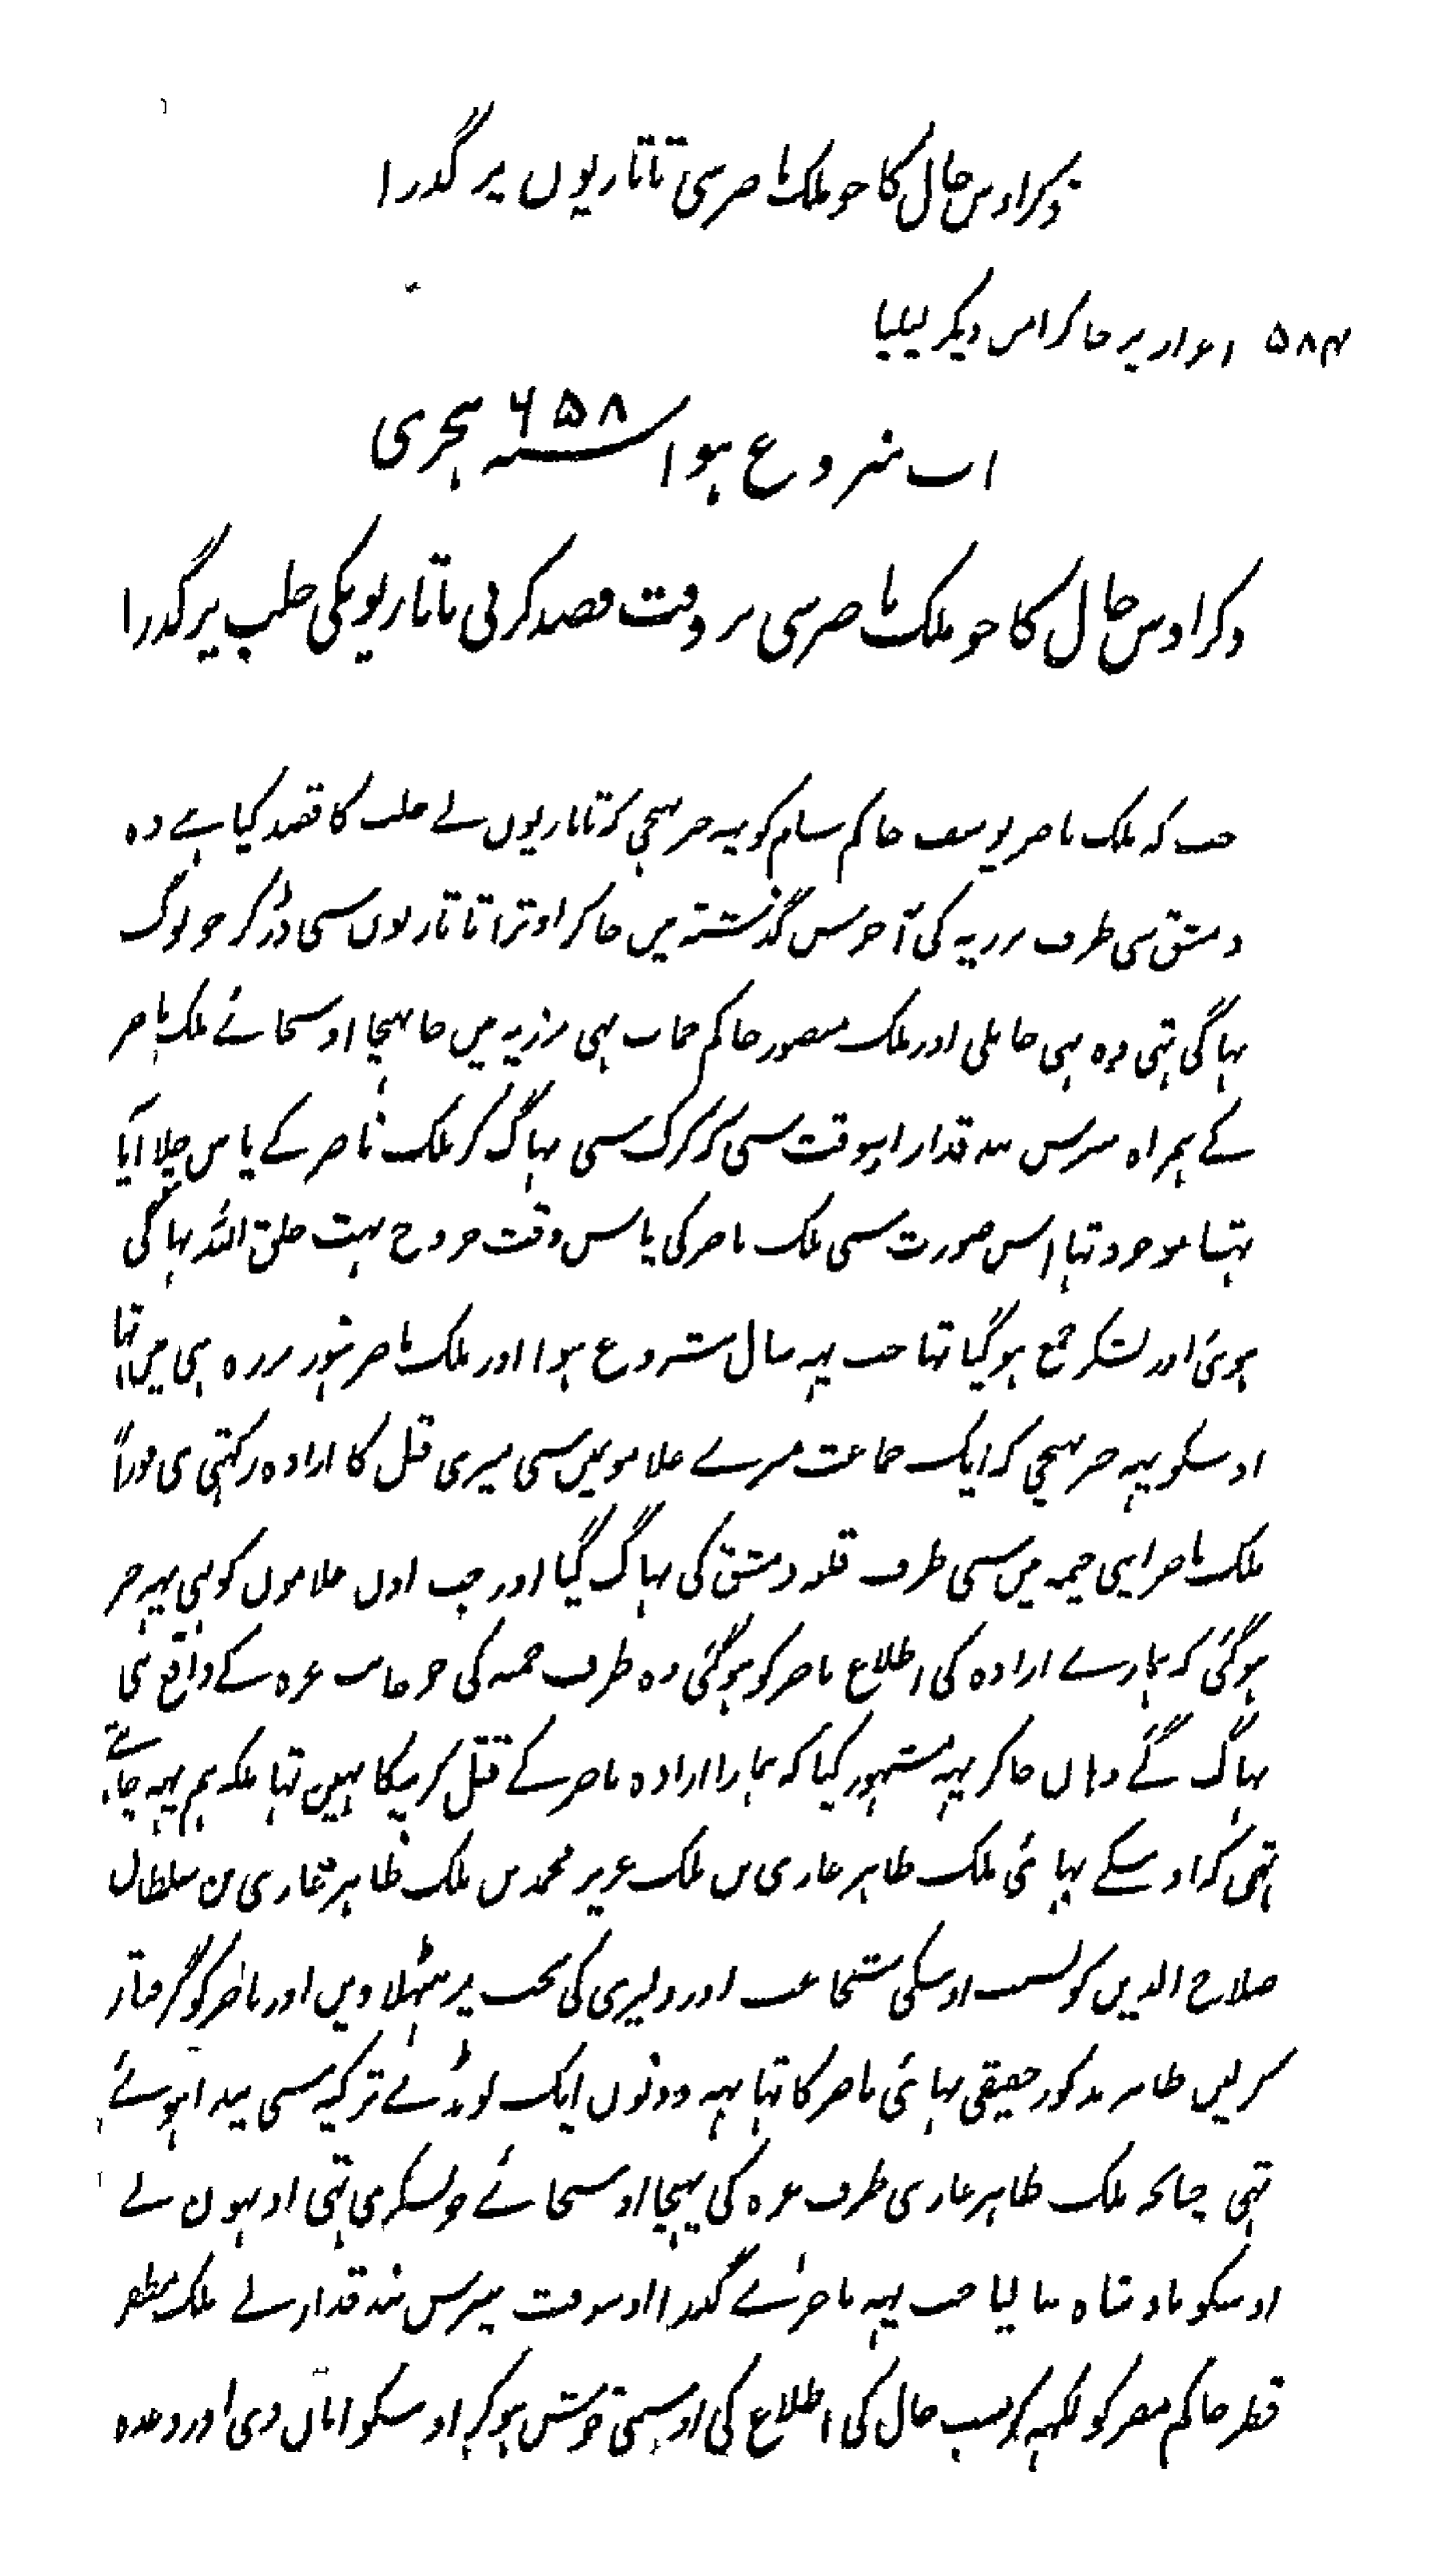 ذکر اوس حال کا جو ملک ناصر سی تاتاریوں پر گذرا
۵۸۴ اعزاز پر جا کر امن دیکر لیلیا
اب شروع ہوا سنہ ۶۵۸ ہجری
ذکر اوس حال کا جو ملک ناصر سی بر وقت قصد کرنی تاتاریونکی حلب پر گذرا
جب کہ ملک ناصر یوسف حاکم شام کو یہہ خبر پہنچی کہ تاتاریوں نے حلب کا قصد کیا ہے وہ
دمشق سی طرف برزیہ کی آخر سن گذشتہ میں جا کر اوترا تاتاریوں سی ڈر کر جو لوگ
بہاگی تہی وہ بہی جا ملی اور ملک منصور حاکم حماب بہی برزیہ میں جا پہنچا اوسجائے ملک ناصر
کے ہمراہ بیبرس بندقدار اسوقت سی کہ کرک سی بہاگ کر ملک ناصر کے پاس چلا آیا
تہا موجود تہا اس صورت سی ملک ناصر کی پاس وقت خروج بہت خلق اللہ بہاگی
ہوئی اور لشکر جمع ہو گیا تہا جب یہہ سال شروع ہوا اور ملک ناصر ہنوز برزہ ہی میں تہا
اوسکو یہہ خبر پہنچی کہ ایک جماعت میرے غلامونمیں سی میری قتل کا ارادہ رکہتی ہی فوراً
ملک ناصر اپنی خیمہ میں سی طرف قلعہ دمشق کی بہاگ گیا اور جب اون غلاموں کو بہی یہہ خبر
ہو گئی کہ ہمارے ارادہ کی اطلاع ناصر کو ہو گئی وہ طرف خیمہ کی جو جانب غزہ کے واقع ہی
بہاگ گے وہاں جا کر یہہ مشہور کیا کہ ہمارا ارادہ ناصر کے قتل کرنیکا نہیں تہا بلکہ ہم یہہ چاہتے
تہی کہ اوسکے بہائی ملک ظاہر غازی بن ملک عزیز محمد بن ملک ظاہر غازی بن سلطان
صلاح الدین کو بسبب اوسکی شجاعت اور دلیری کی تخت پر بٹہلا دیں اور ناصر کو گرفتار
کر لیں ظاہر مذکور حقیقی بہائی ناصر کا تہا یہہ دونوں ایک لونڈے ترکیہ سی پیدا ہوئے
تہی چنانچہ ملک ظاہر غازی طرف غزہ کی پہنچا اوسجائے جو لشکری تہی اونہوں نے
اوسکو بادشاہ بنا لیا جب یہہ ماجرائے گذرا اوسوقت بیبرس بندقدار نے ملک مظفر
قطز حاکم مصر کو لکہہ کر سب حال کی اطلاع کی اوسنی خوش ہو کر اوسکو اماں دی اور وعدہ